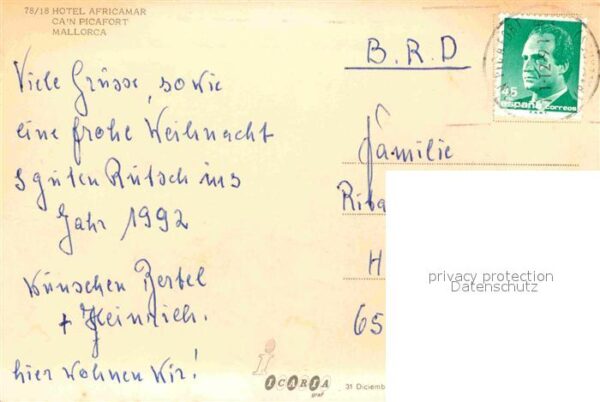 78/18 HOTEL AFRICAMAR
CA'N PICAFORT
MALLORCA
Viele Grüsse, sowie
eine frohe Weihnacht
guten Rutsch ins
Jahr 1992
wünschen Bertel
+ Heinrich.
hier wohnen wir!
B.R.D
Familie
H
65
45
españa correos
privacy protection
Datenschutz
ICARIA
graf
31 Diciemb